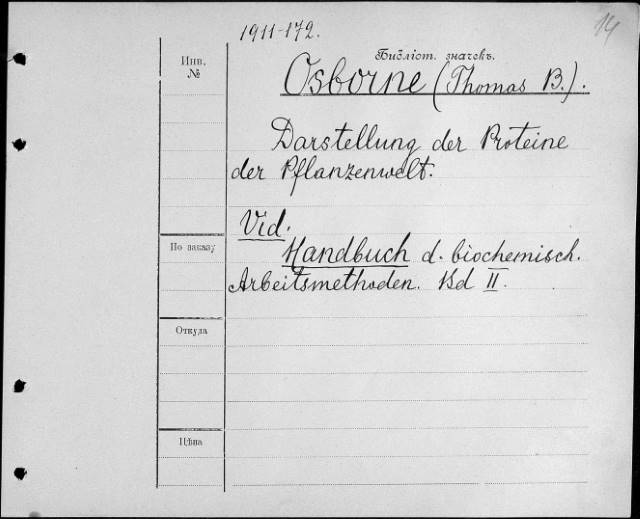 1911-172.
14
Инв.
№
Библіот. значекъ.
Osborne (Thomas B.).
Darstellung der Proteine
der Pflanzenwelt.
Vid.
По заказу
Handbuch d. biochemisch.
Arbeitsmethoden. Bd II.
Откуда
Цѣна